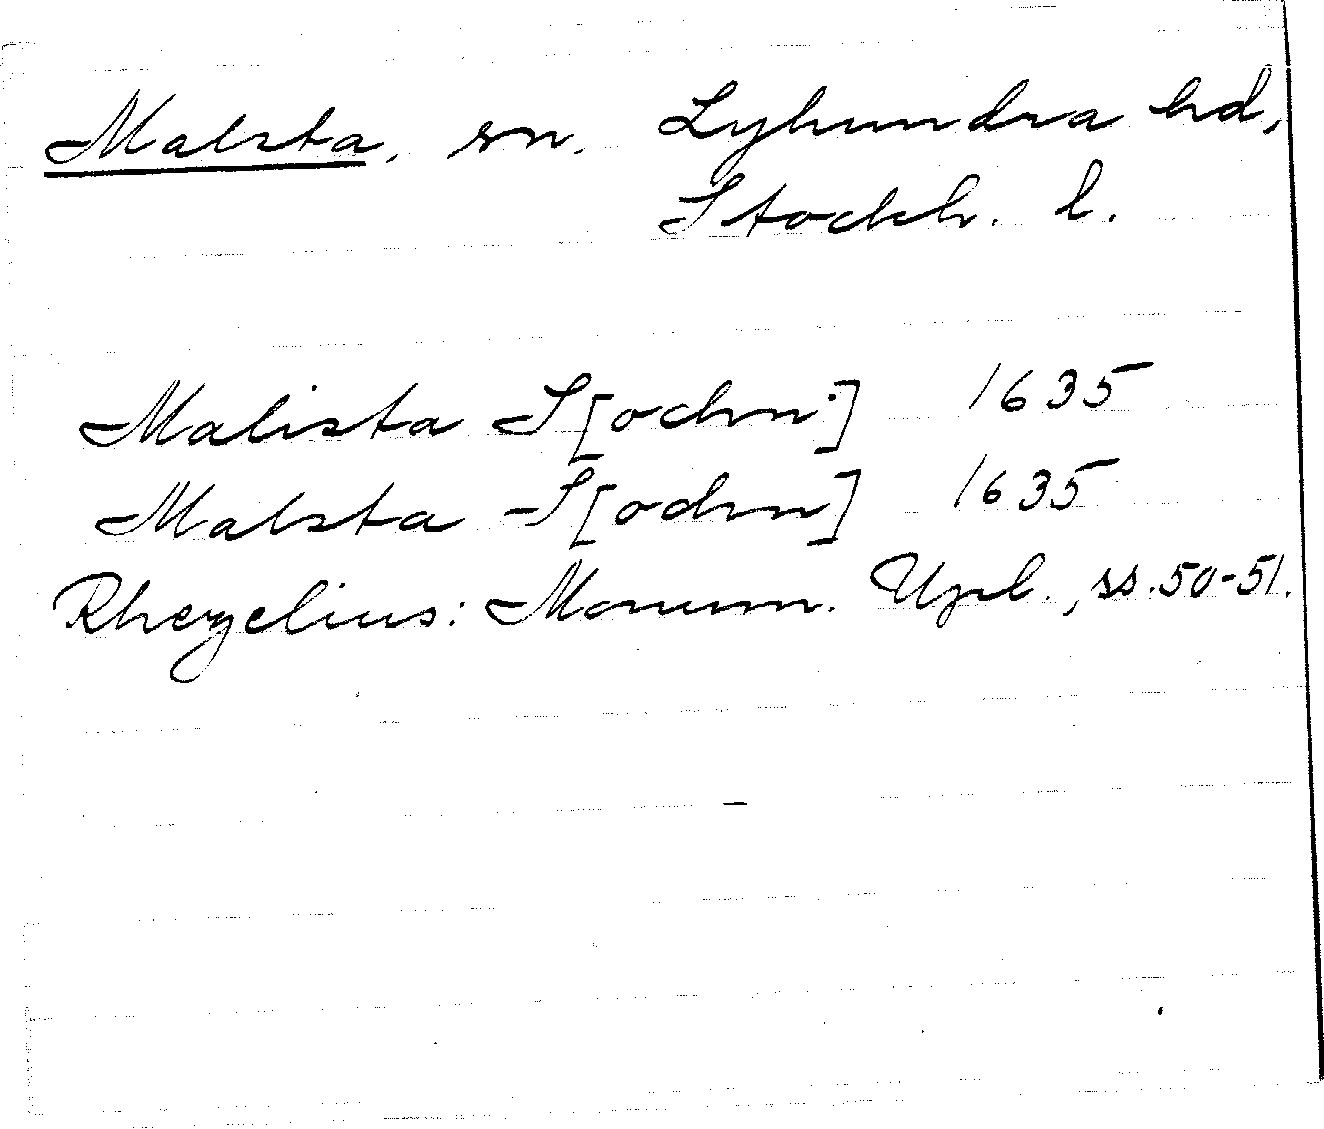 Malsta, sn. Lyhundra hd,
Stockh. l.
Malista S[ochn] 1635
Malsta S[ochn] 1635
Rhezelius: Monum. Upl., ss. 50-51.